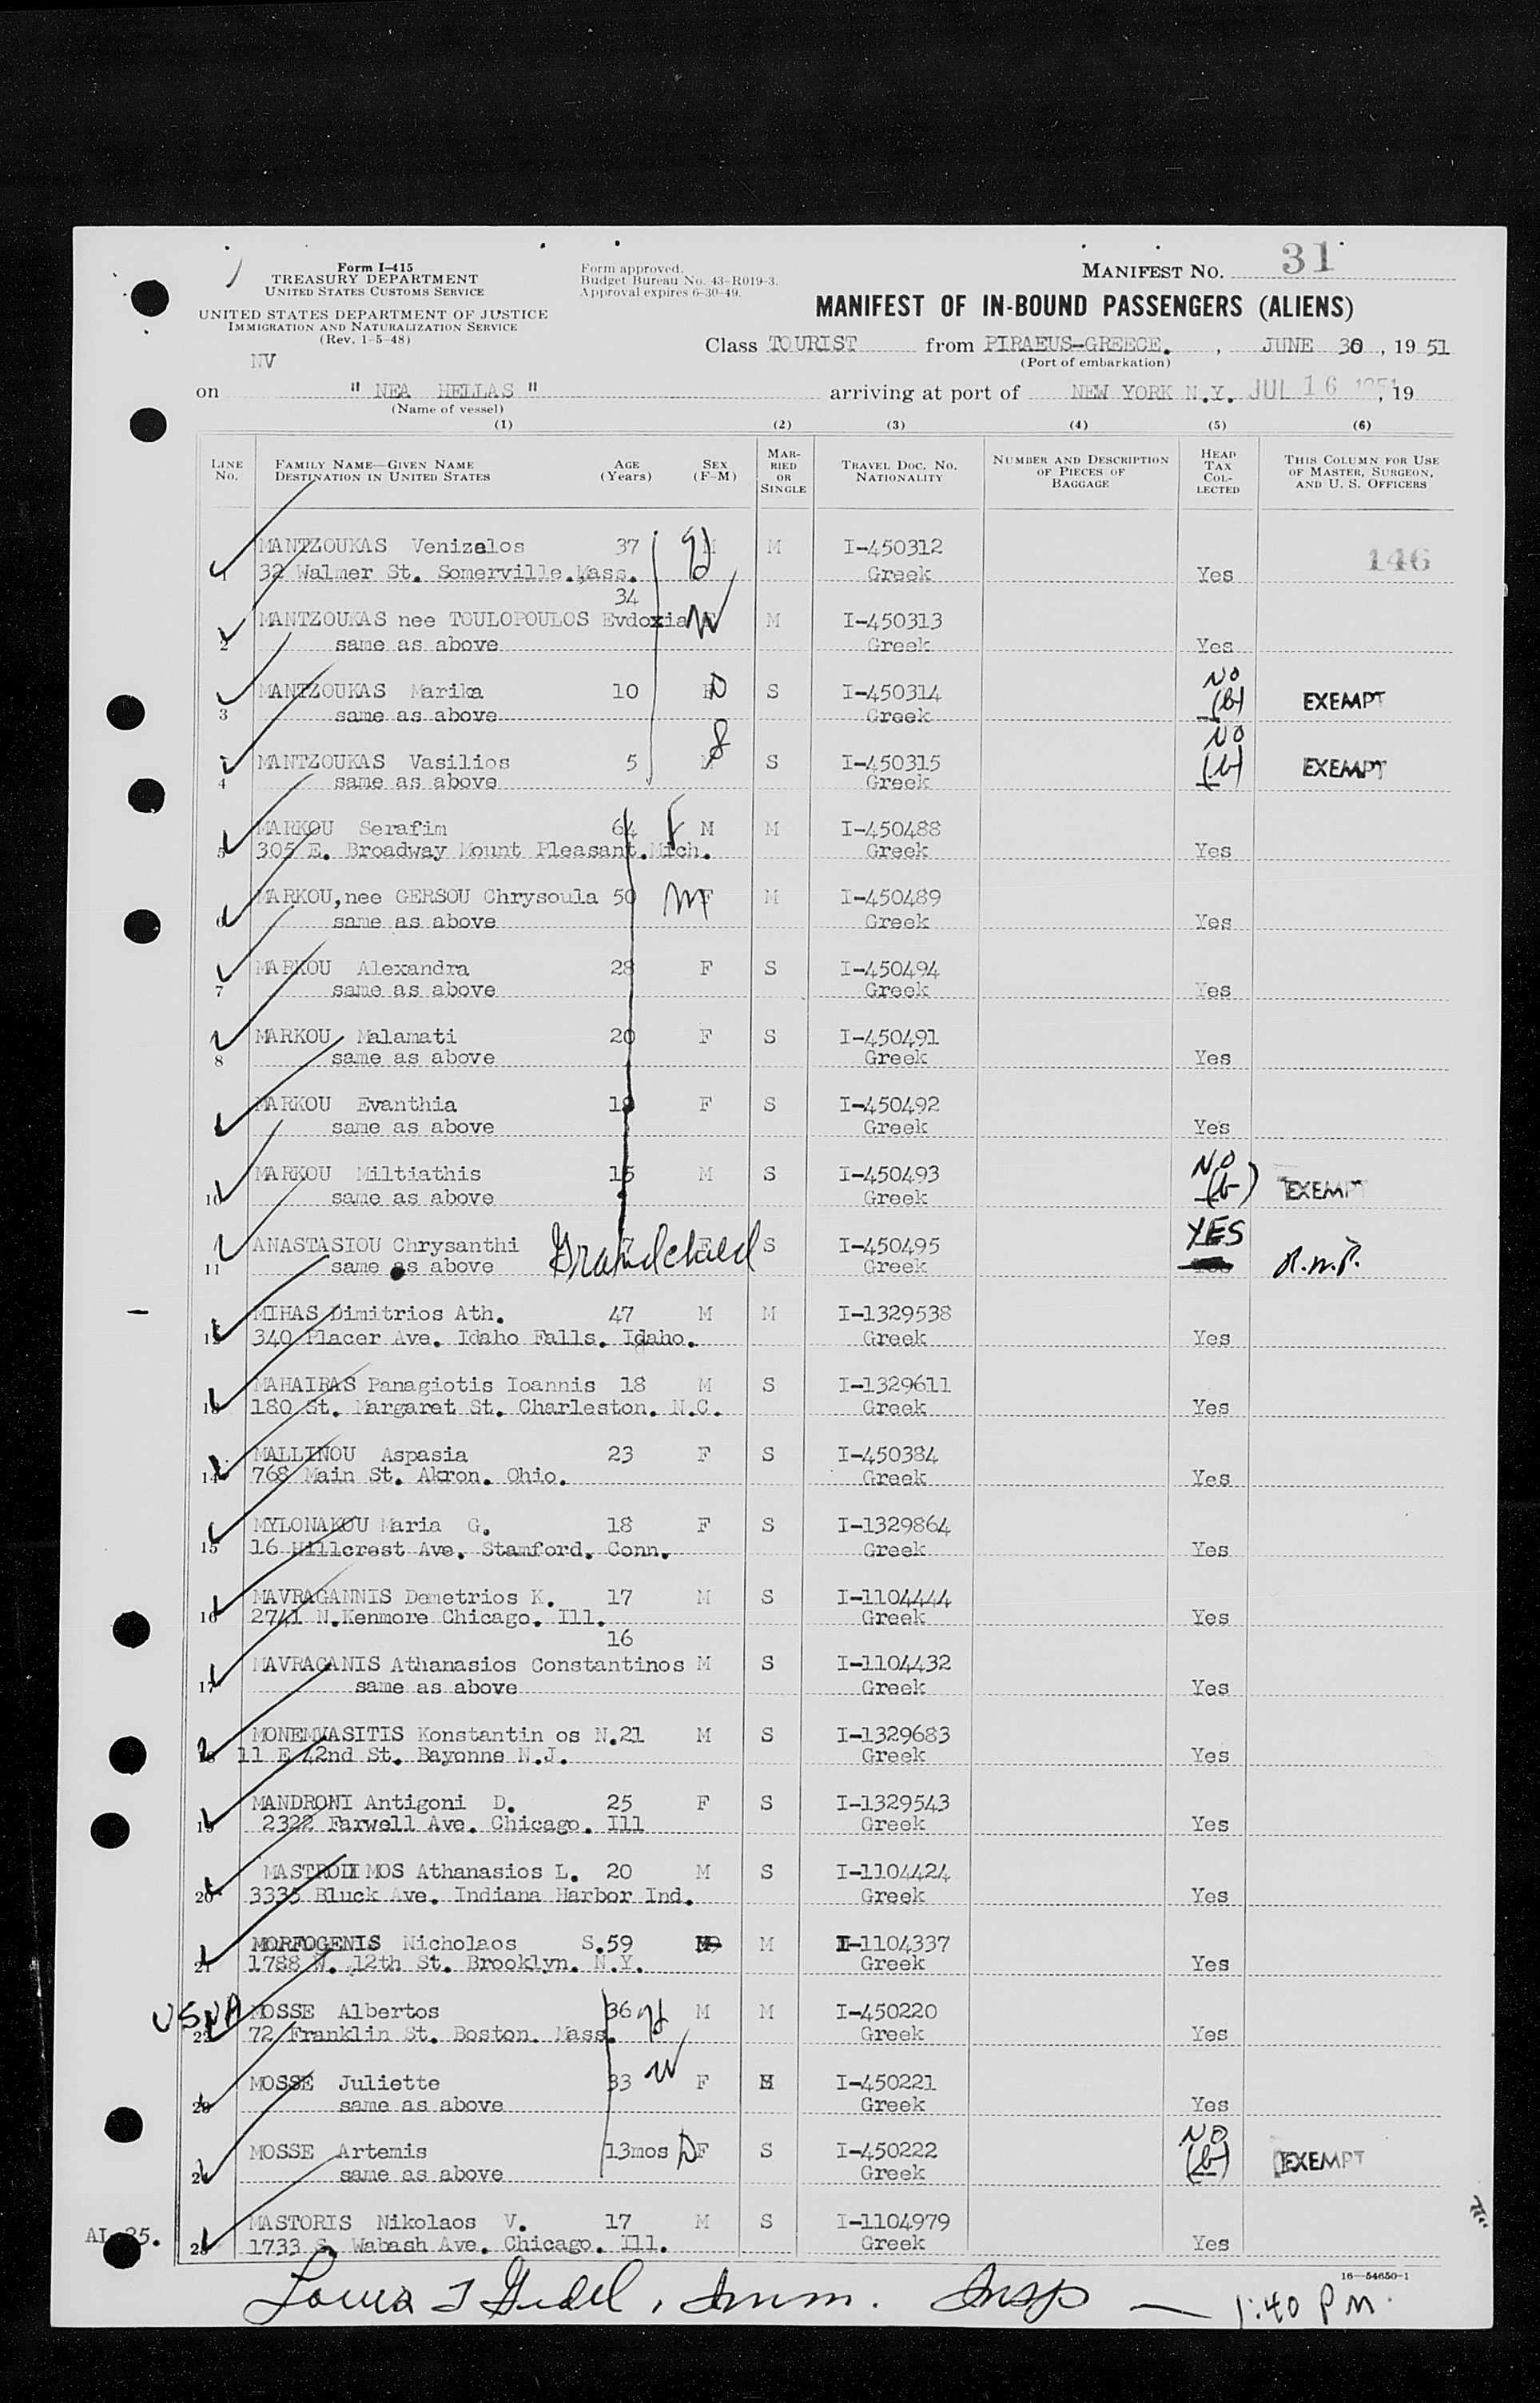 Form I-415
TREASURY DEPARTMENT
UNITED STATES CUSTOMS SERVICE
UNITED STATES DEPARTMENT OF JUSTICE
IMMIGRATION AND NATURALIZATION SERVICE
(Rev. 1-5-48)
Form approved.
Budget Bureau No. 43-R019-3.
Approval expires 6-30-49.
MANIFEST NO. 31
MANIFEST OF IN-BOUND PASSENGERS (ALIENS)
Class TOURIST from PIRAEUS-GREECE. , JUNE 30 , 19 51
(Port of embarkation)
NV
on " NEA HELLAS " arriving at port of NEW YORK N.Y. JUL 16 1951, 19
(Name of vessel)
(1) (2) (3) (4) (5) (6)
LINE NO. FAMILY NAME—GIVEN NAME DESTINATION IN UNITED STATES AGE (Years) SEX (F-M) MARRIED OR SINGLE TRAVEL DOC. NO. NATIONALITY NUMBER AND DESCRIPTION OF PIECES OF BAGGAGE HEAD TAX COLLECTED THIS COLUMN FOR USE OF MASTER, SURGEON, AND U. S. OFFICERS
MANTZOUKAS Venizelos 37 M M I-450312 146
1 32 Walmer St. Somerville.Mass. Greek Yes
34
MANTZOUKAS nee TOULOPOULOS Evdoxia W M I-450313
2 same as above Greek Yes
MANTZOUKAS Marika 10 D S I-450314 NO (b) EXEMPT
3 same as above Greek
MANTZOUKAS Vasilios 5 M S I-450315 NO (b) EXEMPT
4 same as above Greek
MARKOU Serafim 64 F M M I-450488
5 305 E. Broadway Mount Pleasant.Mich. Greek Yes
MARKOU,nee GERSOU Chrysoula 50 M F M I-450489
6 same as above Greek Yes
MARKOU Alexandra 28 F S I-450494
7 same as above Greek Yes
MARKOU Malamati 20 F S I-450491
8 same as above Greek Yes
MARKOU Evanthia 18 F S I-450492
same as above Greek Yes
MARKOU Miltiathis 15 M S I-450493 NO (b) EXEMPT
10 same as above Greek
ANASTASIOU Chrysanthi Grandchild S I-450495 YES
11 same as above Greek R.W.P.
MIHAS Dimitrios Ath. 47 M M I-1329538
12 340 Placer Ave. Idaho Falls. Idaho. Greek Yes
MAHAIRAS Panagiotis Ioannis 18 M S I-1329611
13 180 St. Margaret St. Charleston. N.C. Greek Yes
MALLINOU Aspasia 23 F S I-450384
14 768 Main St. Akron. Ohio. Greek Yes
MYLONAKOU Maria G. 18 F S I-1329864
15 16 Hillcrest Ave. Stamford. Conn. Greek Yes
MAVRAGANNIS Demetrios K. 17 M S I-1104444
16 2741 N.Kenmore Chicago. Ill. Greek Yes
16
MAVRAGANIS Athanasios Constantinos M S I-1104432
17 same as above Greek Yes
MONEMVASITIS Konstantin os N.21 M S I-1329683
18 11 E 42nd St. Bayonne N.J. Greek Yes
MANDRONI Antigoni D. 25 F S I-1329543
19 2322 Farwell Ave. Chicago. Ill Greek Yes
MASTRODIMOS Athanasios L. 20 M S I-1104424
20 3335 Bluck Ave. Indiana Harbor Ind. Greek Yes
MORFOGENIS Nicholaos S.59 M M I-1104337
21 1788 W. 12th St. Brooklyn. N.Y. Greek Yes
USNA MOSSE Albertos 36 M M I-450220
22 72 Franklin St. Boston. Mass. Greek Yes
MOSSE Juliette 33 W F M I-450221
23 same as above Greek Yes
MOSSE Artemis 13mos D F S I-450222 NO (b) EXEMPT
24 same as above Greek
MASTORIS Nikolaos V. 17 M S I-1104979
AL 25. 25 1733 S. Wabash Ave. Chicago. Ill. Greek Yes
16—54650-1
Imm. Insp — 1:40 PM.